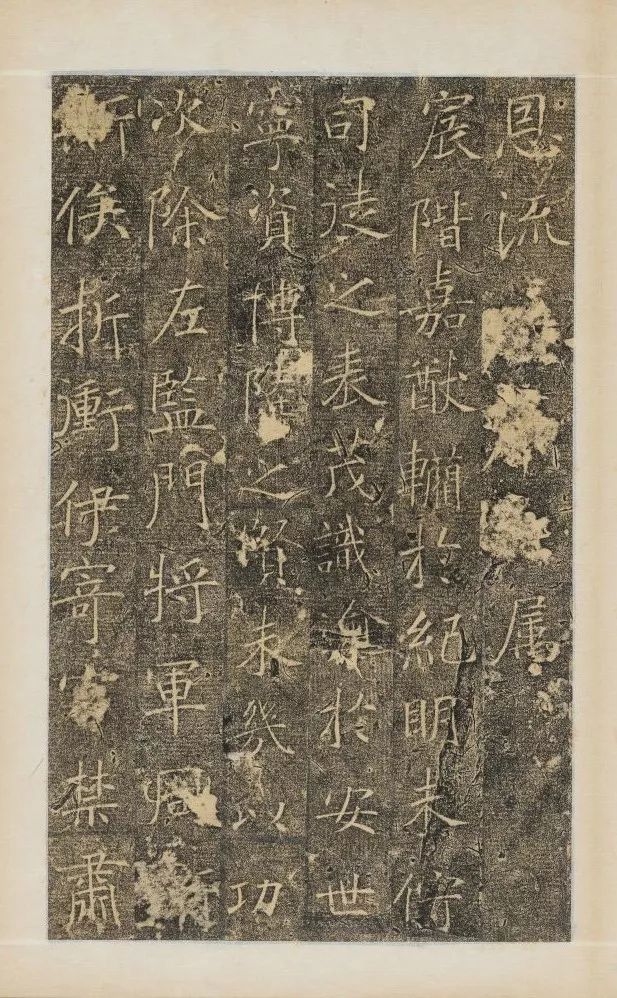 恩流属
宸階嘉猷於紀明未俯
句逵之表茂識深於安世
寧資博陸之賢未幾以功
次除左監門將軍周
俟折衝伊寄禁肅